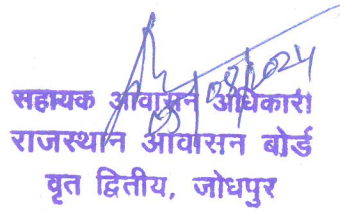 सहायक आवासन अधिकारी
राजस्थान आवासन बोर्ड
वृत द्वितीय, जोधपुर